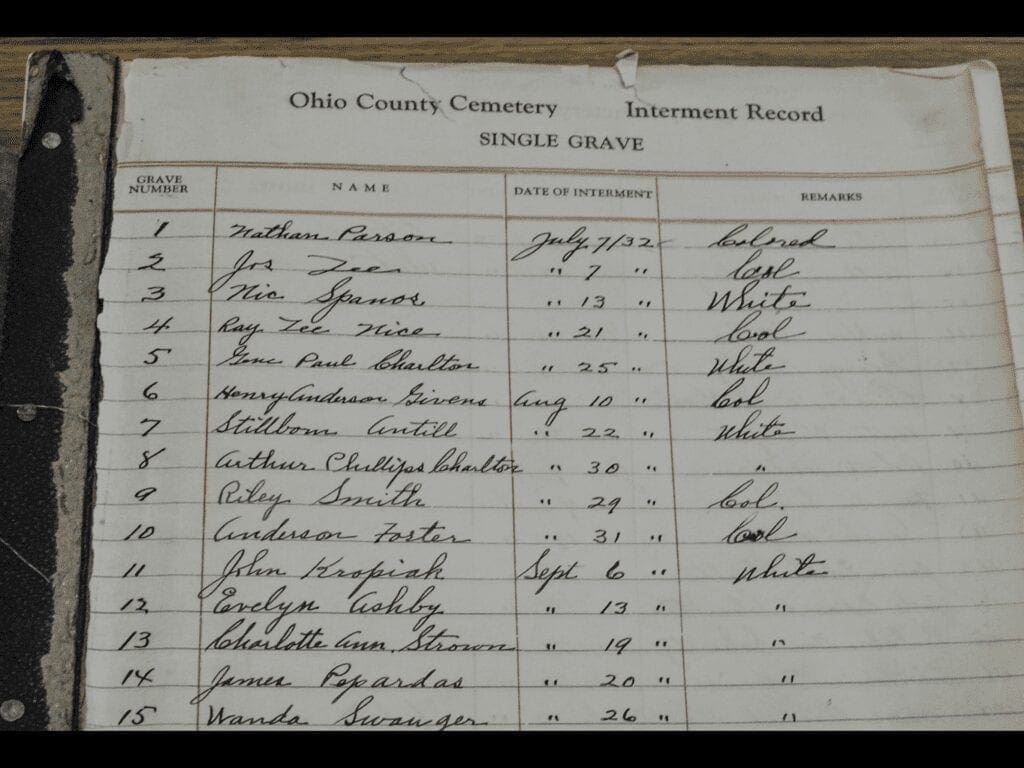 Ohio County Cemetery Interment Record
SINGLE GRAVE
GRAVE NUMBER NAME DATE OF INTERMENT REMARKS
1 Nathan Parson July 7/32 Colored
2 Jos Lee " 7 " Col
3 Nic Spanos " 13 " White
4 Ray Lee Nice " 21 " Col
5 Gene Paul Charlton " 25 " White
6 Henry Anderson Givens Aug 10 " Col
7 Stillborn Antill " 22 " White
8 Arthur Phillips Charlton " 30 " "
9 Riley Smith " 29 " Col.
10 Anderson Foster " 31 " Col
11 John Kropiak Sept 6 " White
12 Evelyn Ashby " 13 " "
13 Charlotte Ann. Strown " 19 " "
14 James Pepardas " 20 " "
15 Wanda Swauger " 26 " "